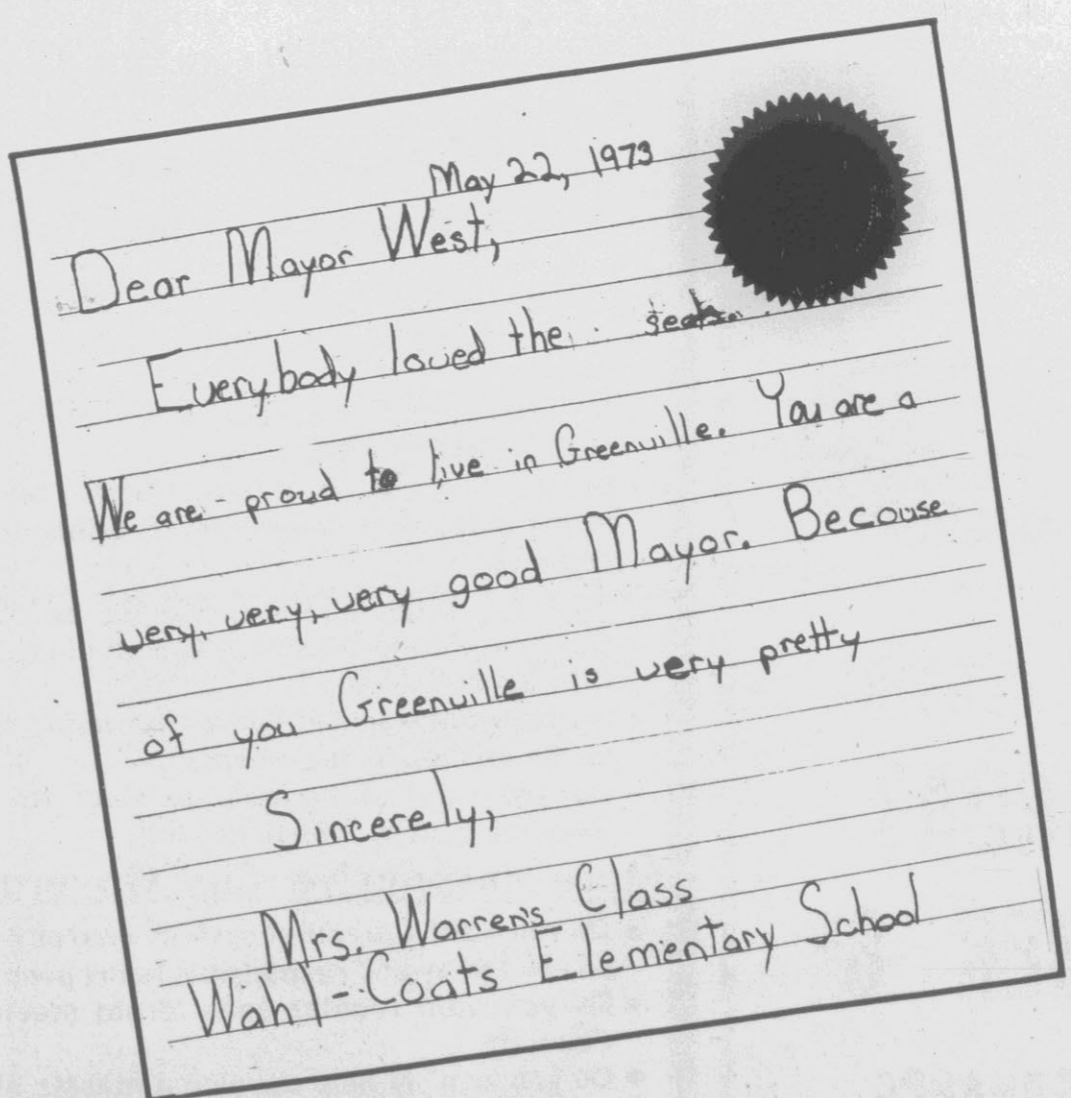 May 22, 1973
Dear Mayor West,
Everybody loved the
We are proud to live in Greenville. You are a
very, very, very good Mayor. Becouse
of you Greenville is very pretty
Sincerely,
Mrs. Warren's Class
Wahl-Coats Elementary School